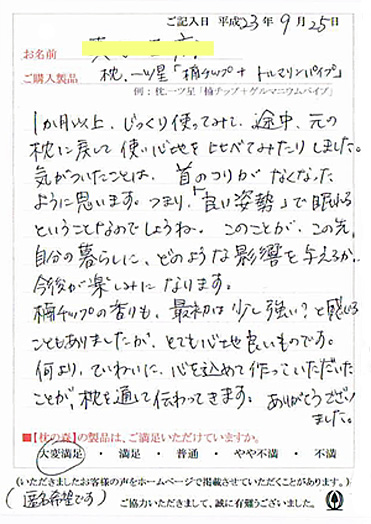 ご記入日 平成23年 9月 25日
お名前
ご購入製品 枕.一ツ星「楠チップ + トルマリンパイプ」
例:枕.一ツ星「楠チップ+ゲルマニウムパイプ」
1か月以上、じっくり使ってみて、途中、元の
枕に戻して使い心地を比べてみたりしました。
気がついたことは、首のつりがなくなった
ように思います。つまり、「良い姿勢」で眠れる
ということなのでしょうね。このことが、この先、
自分の暮らしに、どのような影響を与えるか、
今後が楽しみになります。
楠チップの香りも、最初は少し強い?と感じる
こともありましたが、とても心地良いものです。
何より、ていねいに、心を込めて作っていただいた
ことが、枕を通して伝わってきます。ありがとうござい
ました。
■【枕の森】の製品は、ご満足いただけていますか。
大変満足 ・ 満足 ・ 普通 ・ やや不満 ・ 不満
(いただきましたお客様の声をホームページで掲載させていただくことがあります。)
(匿名希望です) ご協力いただきまして、誠に有難うございました。